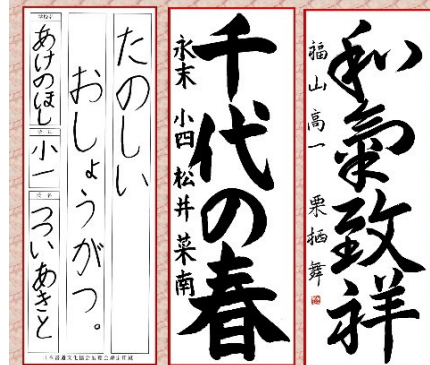 和氣致祥
福山高一 栗栖舞
千代の春
永末 小四 松井菜南
たのしい
おしょうがつ。
あけのほし 小一 つついあきと